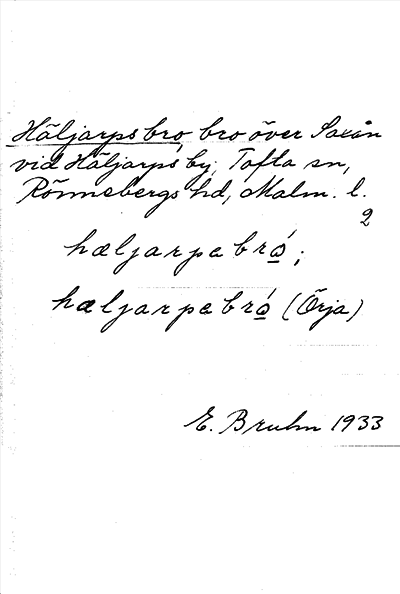 Häljarps bro, bro över Saxån
vid Häljarps by, Tofta sn,
Rönnebergs hd, Malm. l.
2
hæljarpabró̲;
hæljarpabró̲ (Örja)
E. Bruhn 1933